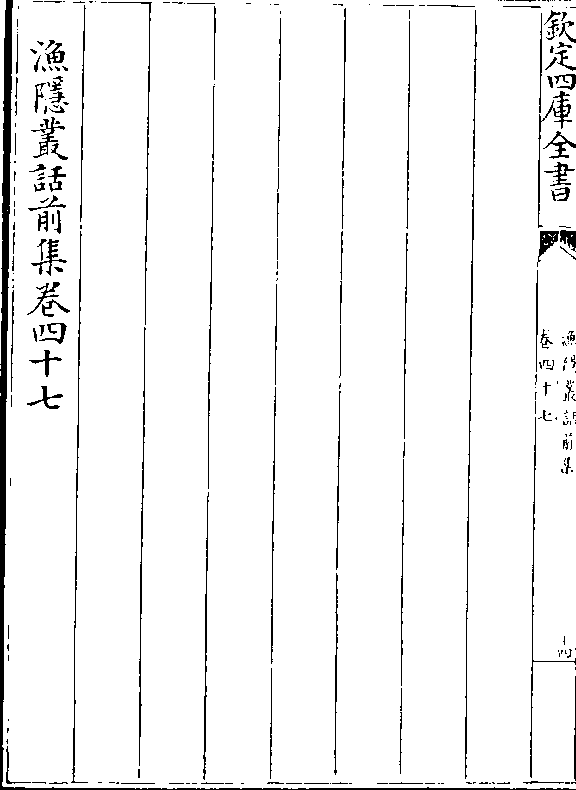 欽定四庫全書
漁隱叢話前集
卷四十七
十四
漁隱叢話前集卷四十七